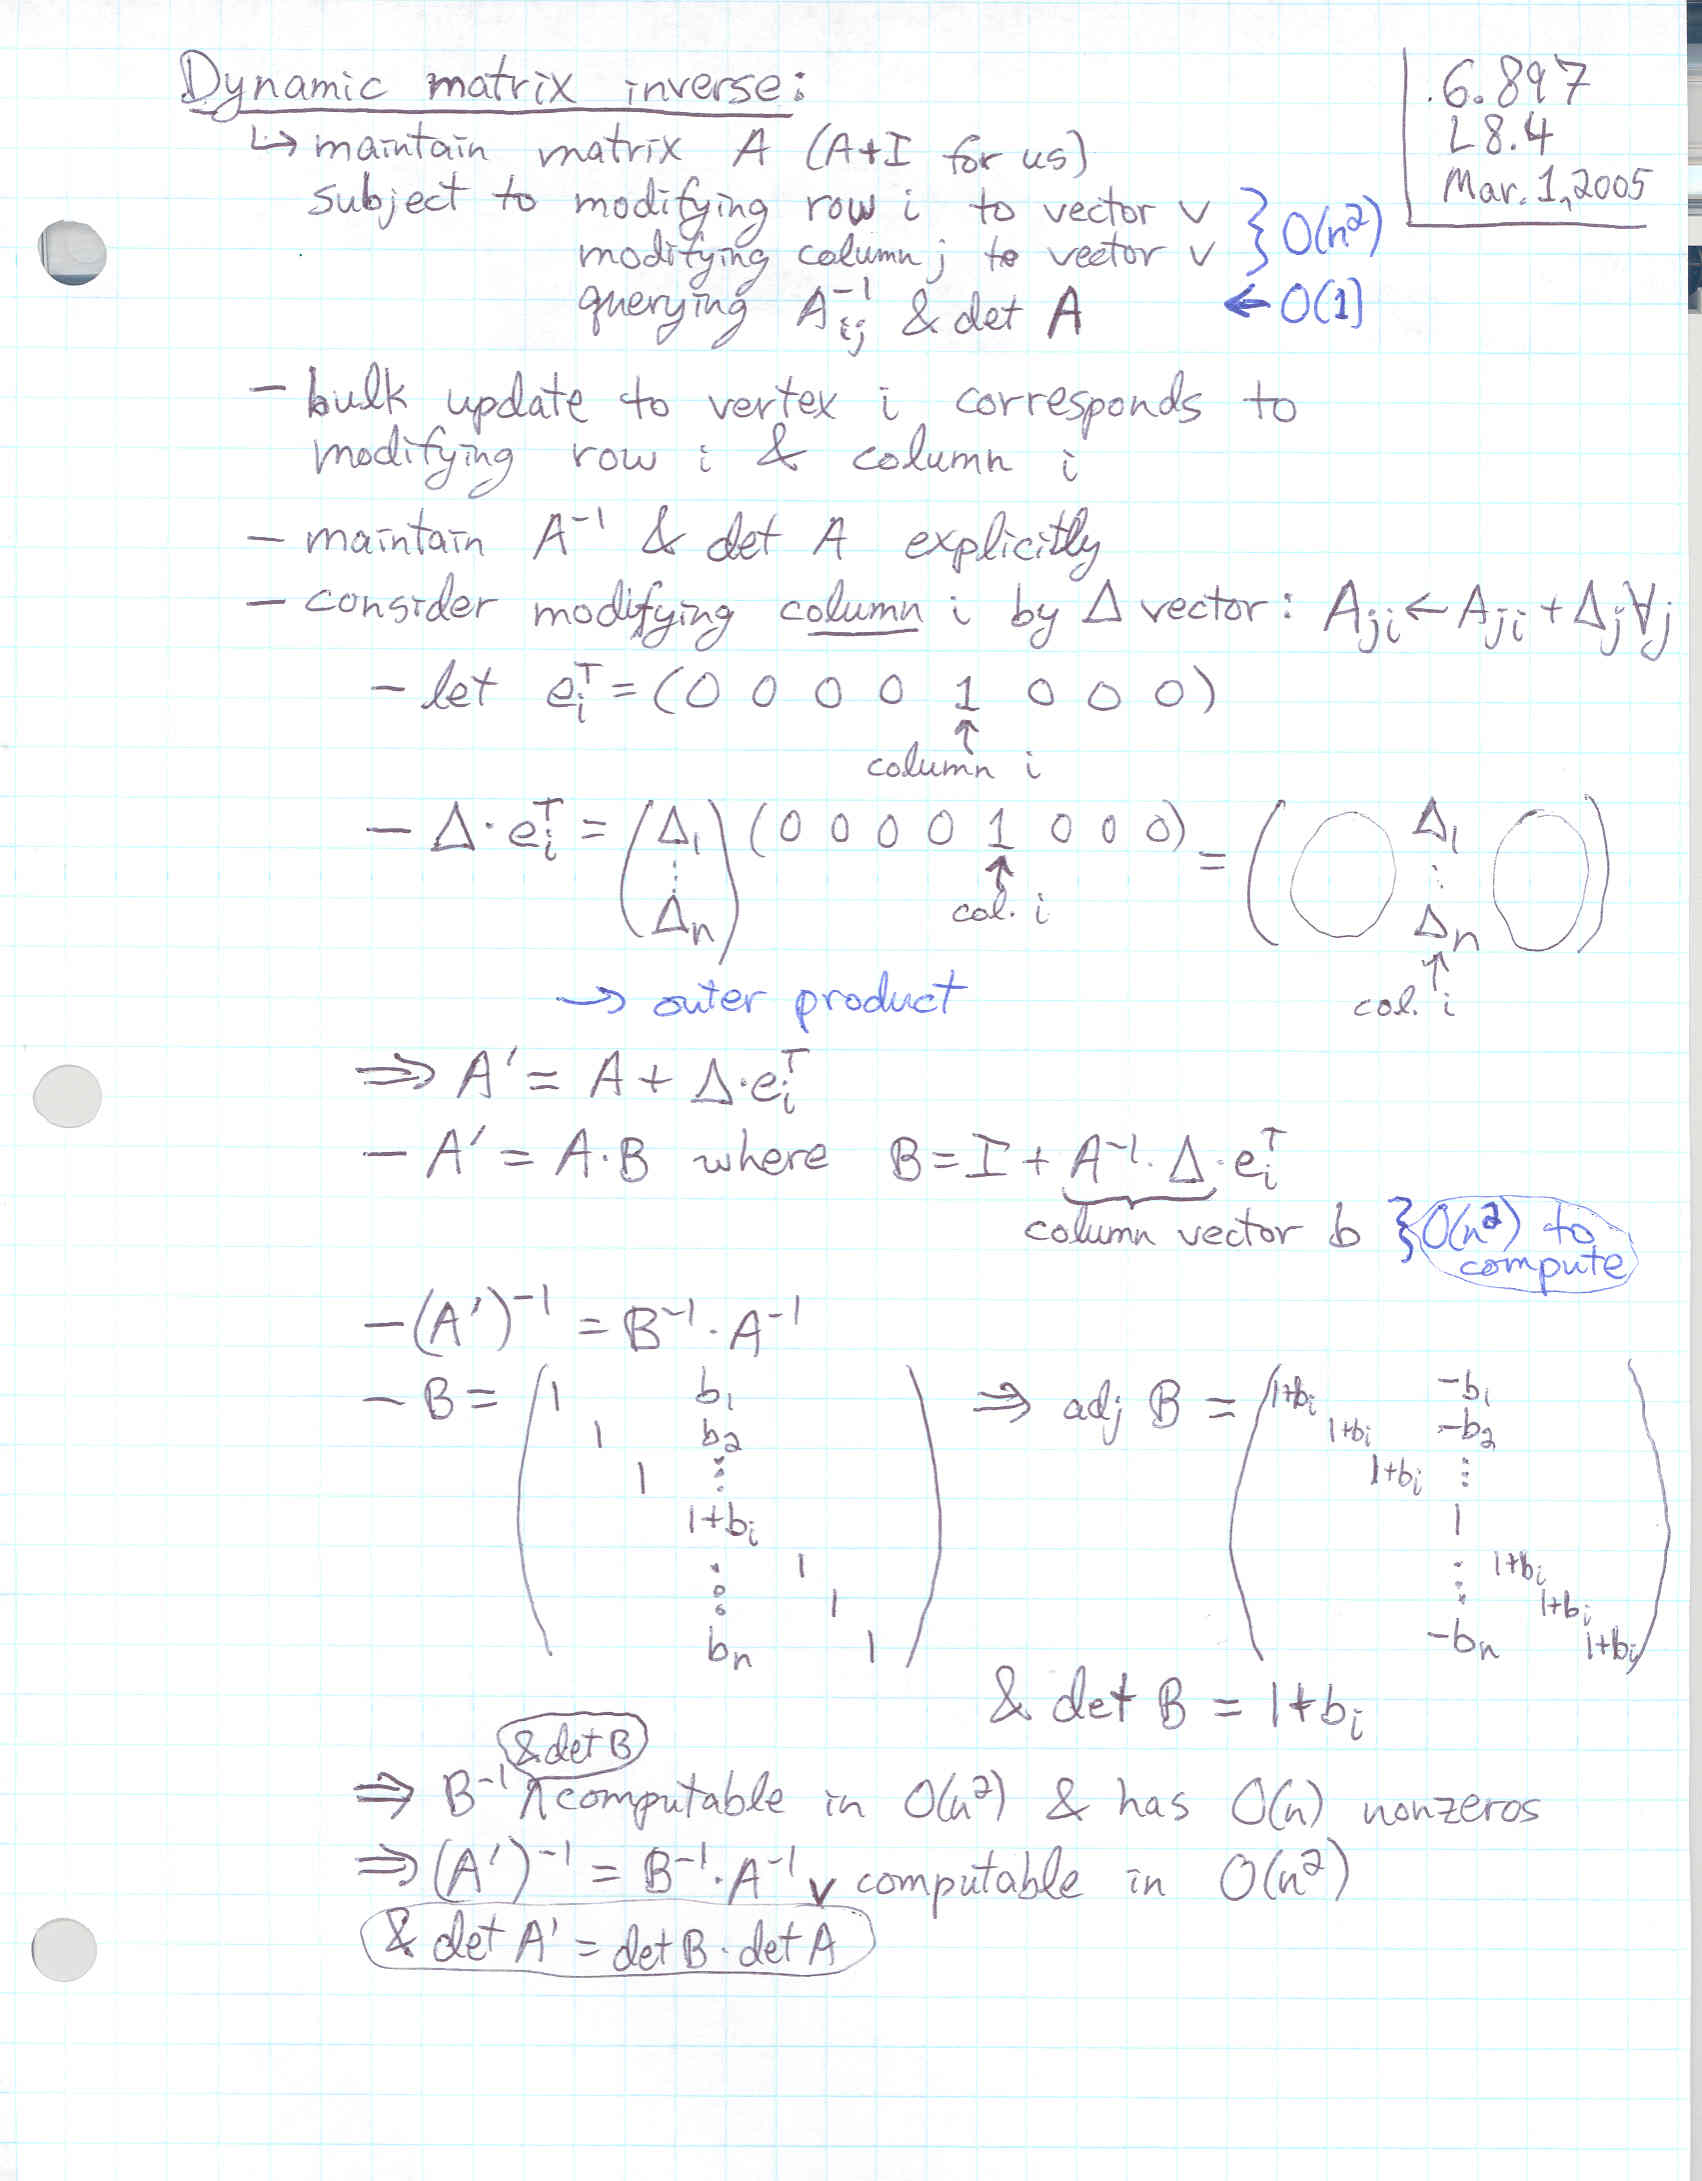 Dynamic matrix inverse:
6.897
L8.4
Mar. 1, 2005
↳ maintain matrix A (A+I for us)
subject to modifying row i to vector v } O(n²)
modifying column j to vector v
querying A⁻¹ᵢⱼ & det A ← O(1)
- bulk update to vertex i corresponds to
modifying row i & column i
- maintain A⁻¹ & det A explicitly
- consider modifying column i by Δ vector: Aⱼᵢ ← Aⱼᵢ + Δⱼ ∀j
- let eᵢᵀ = (0 0 0 0 1 0 0 0)
↑
column i
- Δ·eᵢᵀ = (Δ₁ ⋮ Δn) (0 0 0 0 1 0 0 0) = (0 Δ₁ ⋮ Δn 0)
↑ col. i
↑ col. i
→ outer product
⇒ A' = A + Δ·eᵢᵀ
- A' = A·B where B = I + A⁻¹·Δ·eᵢᵀ
column vector b } O(n²) to
compute
- (A')⁻¹ = B⁻¹·A⁻¹
- B = ( 1 b₁ ) ⇒ adj B = ( 1+bᵢ -b₁ )
1 b₂ 1+bᵢ -b₂
1 ⋮ 1+bᵢ ⋮
1+bᵢ 1
⋮ 1 ⋮ 1+bᵢ
1 1+bᵢ
bn 1 -bn 1+bᵢ
& det B = 1+bᵢ
& det B
⇒ B⁻¹ ∧ computable in O(n²) & has O(n) nonzeros
⇒ (A')⁻¹ = B⁻¹·A⁻¹ ∨ computable in O(n²)
& det A' = det B · det A